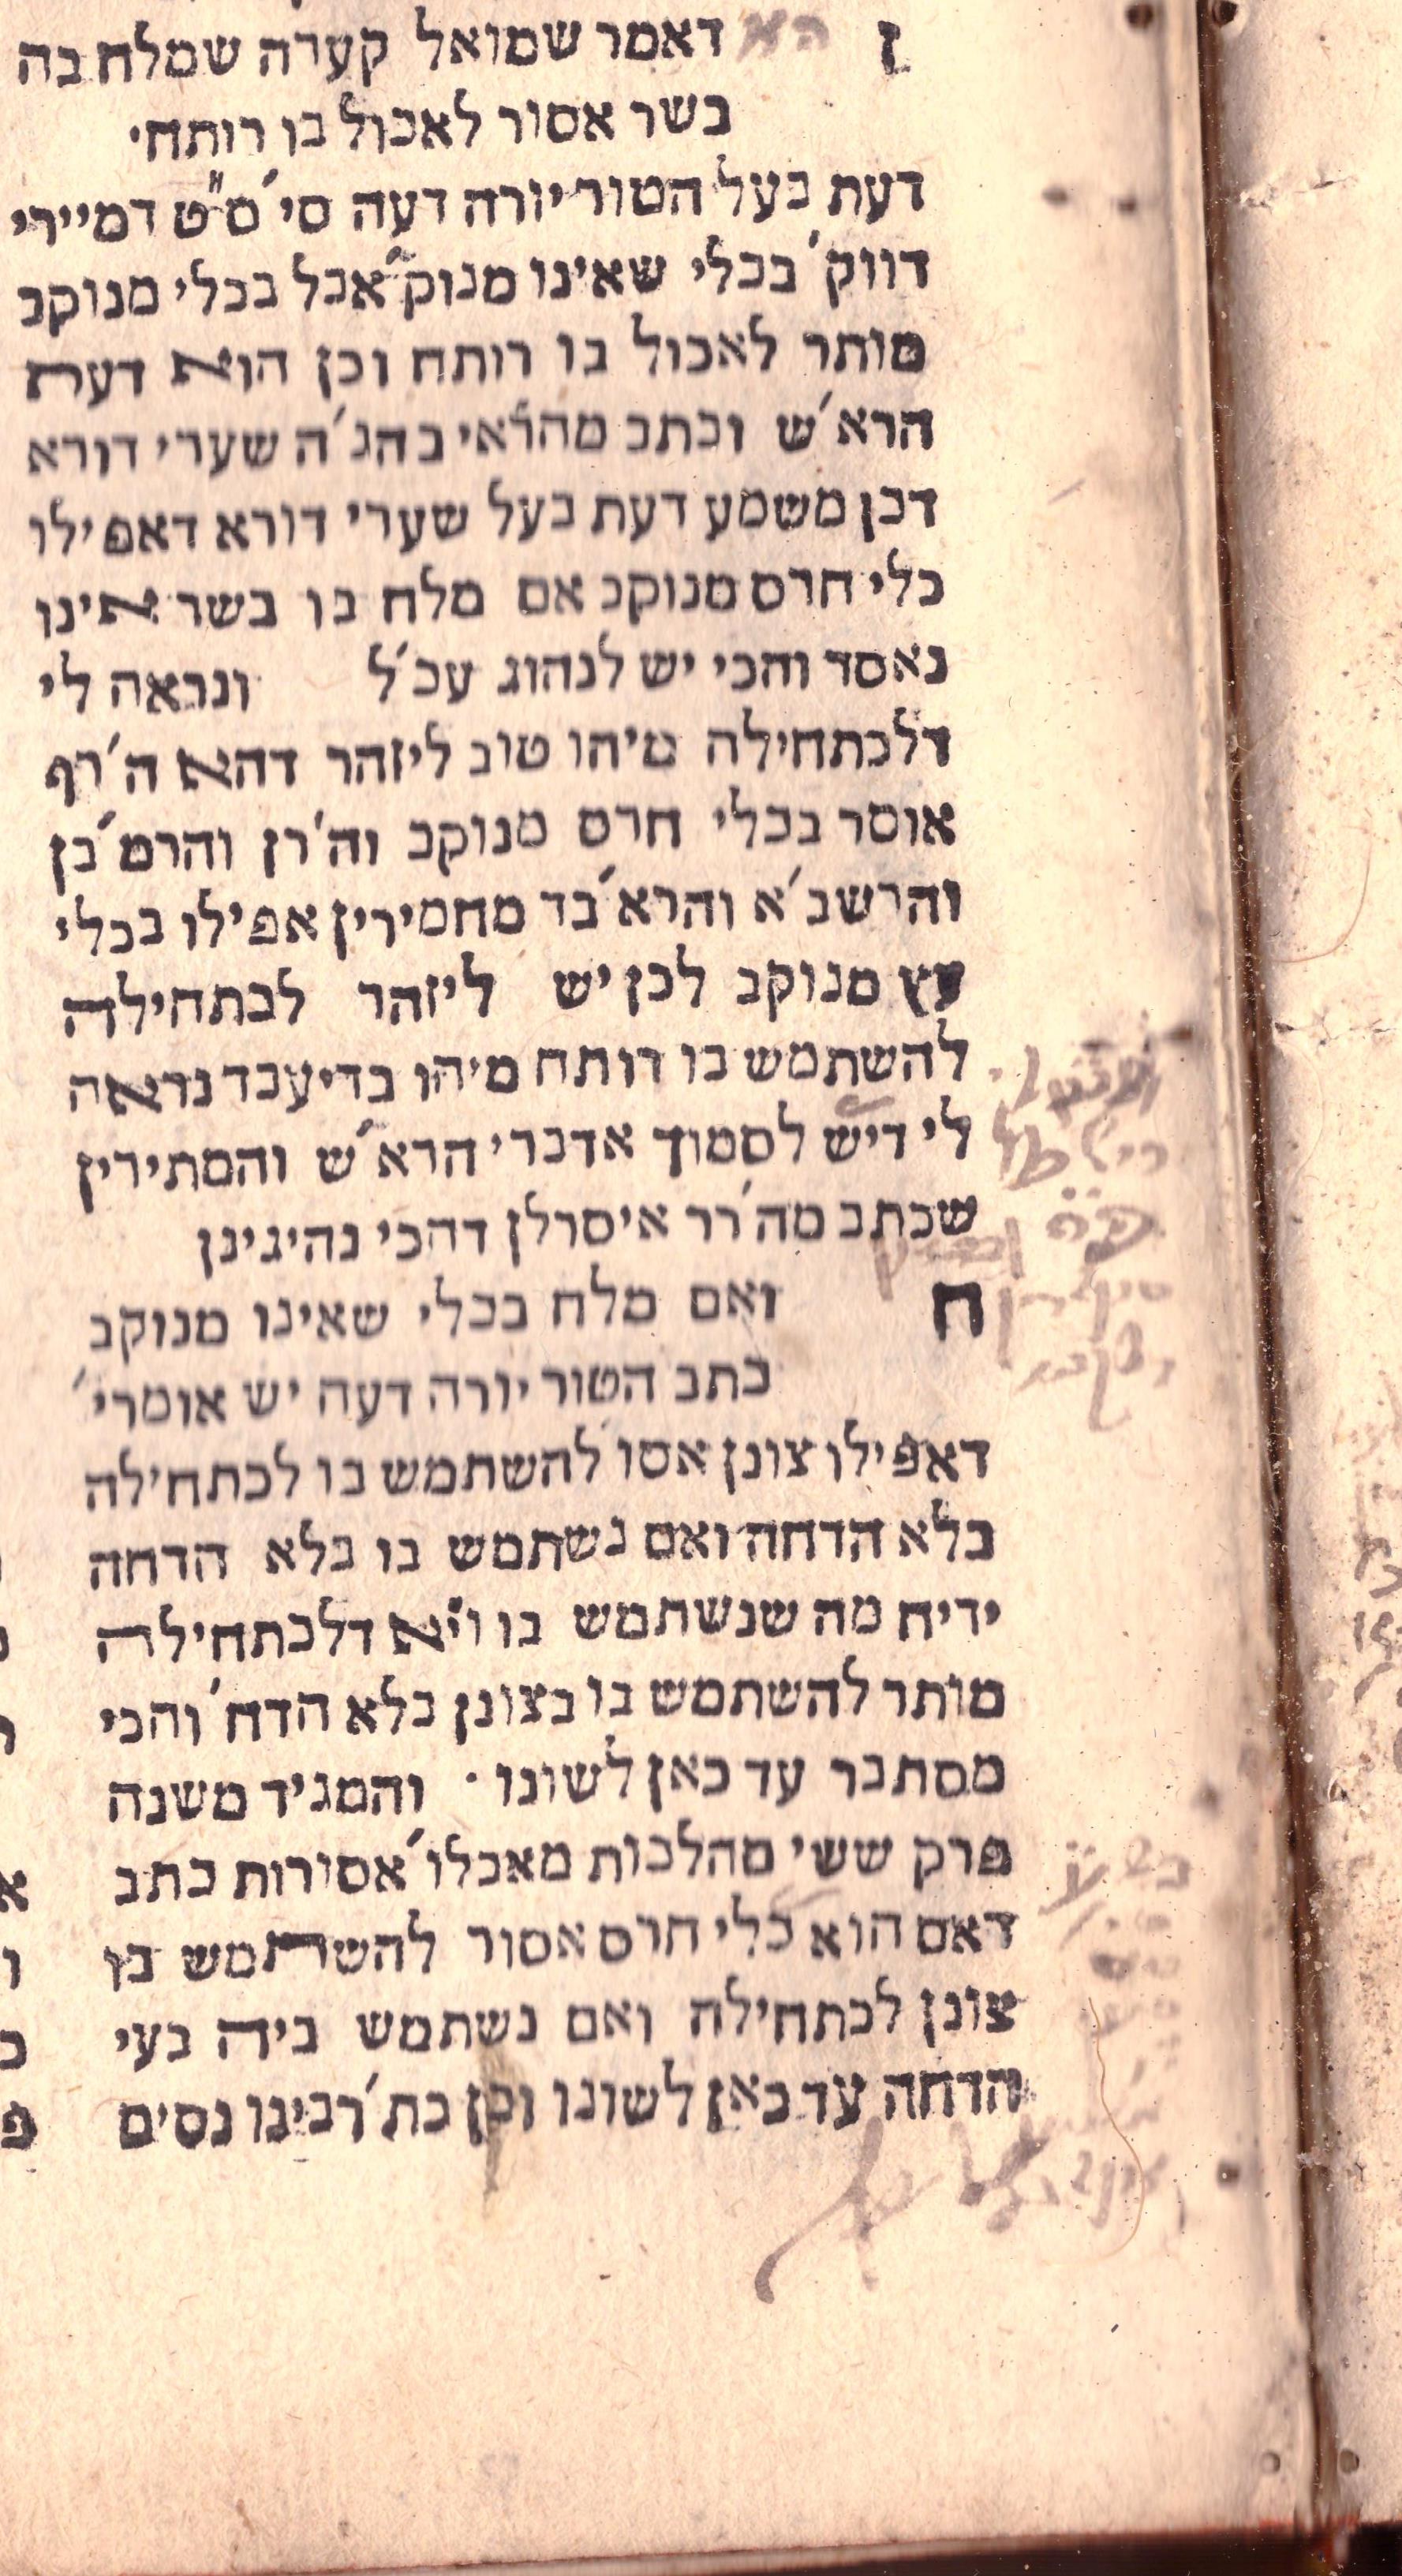 ז הא דאמר שמואל קערה שמלח בה
בשר אסור לאכול בו רותח·
דעת בעל הטור יורה דעה סי' ס"ט דמיירי
דווק' בכלי שאינו מנוק' אבל בכלי מנוקב
מותר לאכול בו רותח וכן הוא דעת
הרא'ש וכתב מהרא'י בהג'ה שערי דורא
דכן משמע דעת בעל שערי דורא דאפילו
כלי חרס מנוקב אם מלח בו בשר אינו
נאסר והכי יש לנהוג עכ'ל ונראה לי
דלכתחילה מיהו טוב ליזהר דהא ה'רף
אוסר בכלי חרס מנוקב וה'רן והרמ'בן
והרשב'א והרא'בד מחמירין אפילו בכלי
עץ מנוקב לכן יש ליזהר לכתחילה
להשתמש בו רותח מיהו בדיעבד נראה
לי דיש לסמוך אדברי הרא'ש והמתירין
שכתב מה'רר איסרלן דהכי נהיגינן
ח ואם מלח בכלי שאינו מנוקב
כתב הטור יורה דעה יש אומרי'
דאפילו צונן אסו' להשתמש בו לכתחילה
בלא הדחה ואם נשתמש בו בלא הדחה
ידיח מה שנשתמש בו וי'א דלכתחילה
מותר להשתמש בו בצונן בלא הדח' והכי
מסתבר עד כאן לשונו · והמגיד משנה
פרק ששי מהלכות מאכלו' אסורות כתב
דאם הוא כלי חרס אסור להשתמש בו
צונן לכתחילה ואם נשתמש ביה בעי
הדחה עד כאן לשונו וכן כת' רבינו נסים